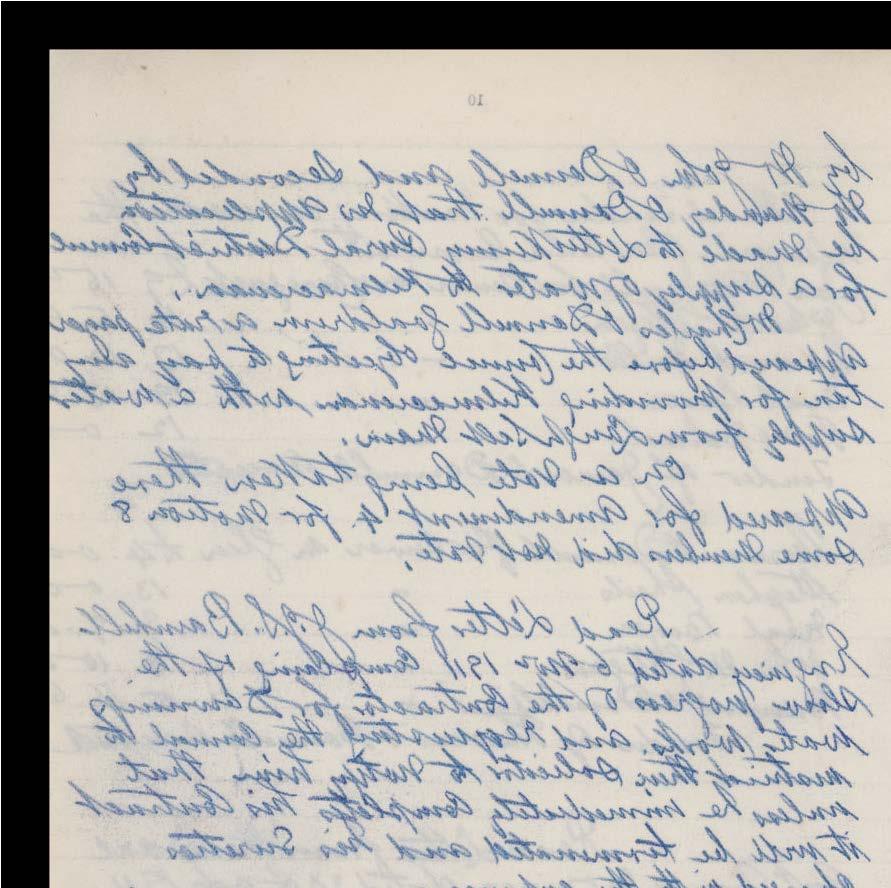 10
by Mr John O'Donnell and seconded by
Mr O'Donnell that no application
be made to Letterkenny Rural District
for a supply of water to Kilmacrenan.
Mr Charles O'Donnell a rate payer
appeared before the Council objecting to pay any
tax for providing Kilmacrenan with a water
supply from Lough Salt
On a vote being taken there
appeared for amendment 4 for motion 8
some members did not vote.
Read Letter from J.S. Barnhill
Engineer dated 6 Nov 1911 complaining of the
slow progress of the Contractor for Downings
water works and requesting the Council to
instruct their solicitor to notify him that
unless he immediately completes his Contract
it will be terminated and his Sureties
with the expense